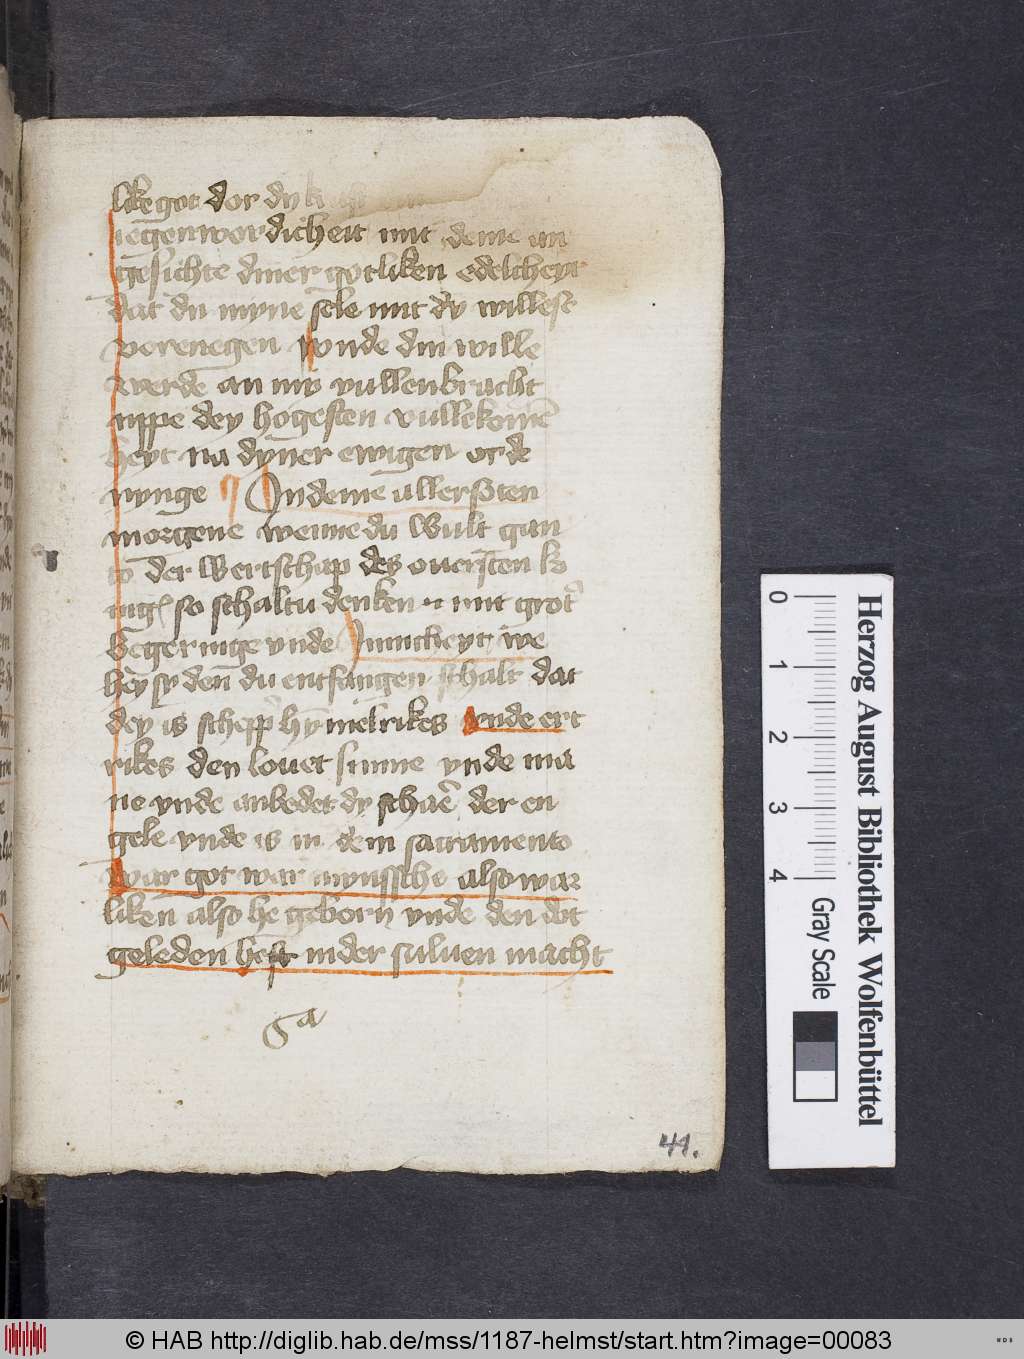 like got dor dy
iegenwordicheit mit deme an
gesichte dyner gotliken edelcheyt
dat du myne sele mit dy willest
vorenegen vnde din wille
werde an my vullenbracht
uppe dey hogesten vullekomē
heyt na dyner ewigen orde
nynge In deme allersten
morgene wenne du wult gan
to der wertschap des ouersten ko
nigs so schaltu denken mit grot'
begeringe vnde Innicheyt we
hey sy den du entfangen schalt dat
dey is schepp' hymelrikes vnde ert
rikes den louet sunne vnde ma
ne vnde anbedet dy schaer der en
gele vnde is in dem sacramento
war got war mynssche also war
liken also he geborn vnde den dot
geleden heft in der suluen macht
Sa
41.
0
1
2
3
4
Gray Scale
Herzog August Bibliothek Wolfenbüttel
© HAB http://diglib.hab.de/mss/1187-helmst/start.htm?image=00083